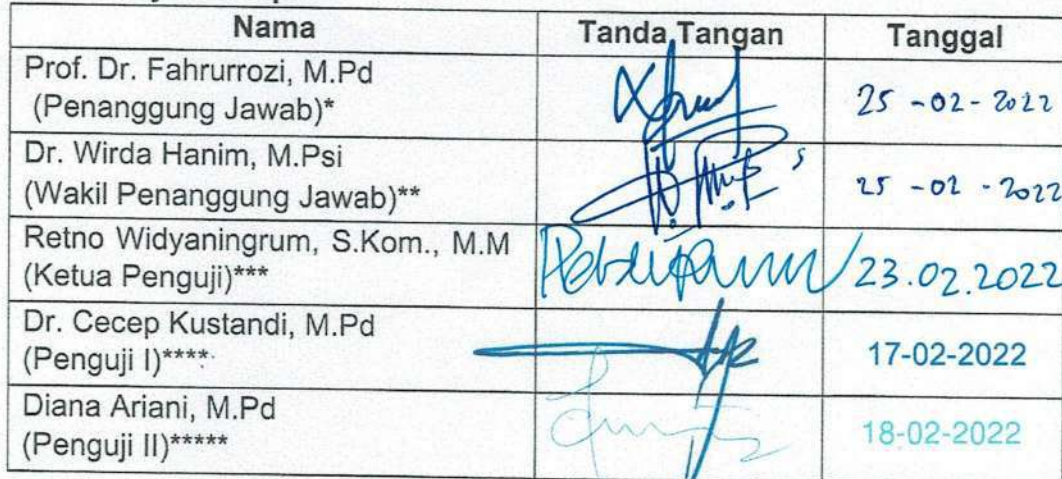 Nama Tanda Tangan Tanggal
Prof. Dr. Fahrurrozi, M.Pd
(Penanggung Jawab)* 25 -02- 2022
Dr. Wirda Hanim, M.Psi
(Wakil Penanggung Jawab)** 25 -02 - 2022
Retno Widyaningrum, S.Kom., M.M
(Ketua Penguji)*** 23.02.2022
Dr. Cecep Kustandi, M.Pd
(Penguji I)**** 17-02-2022
Diana Ariani, M.Pd
(Penguji II)***** 18-02-2022